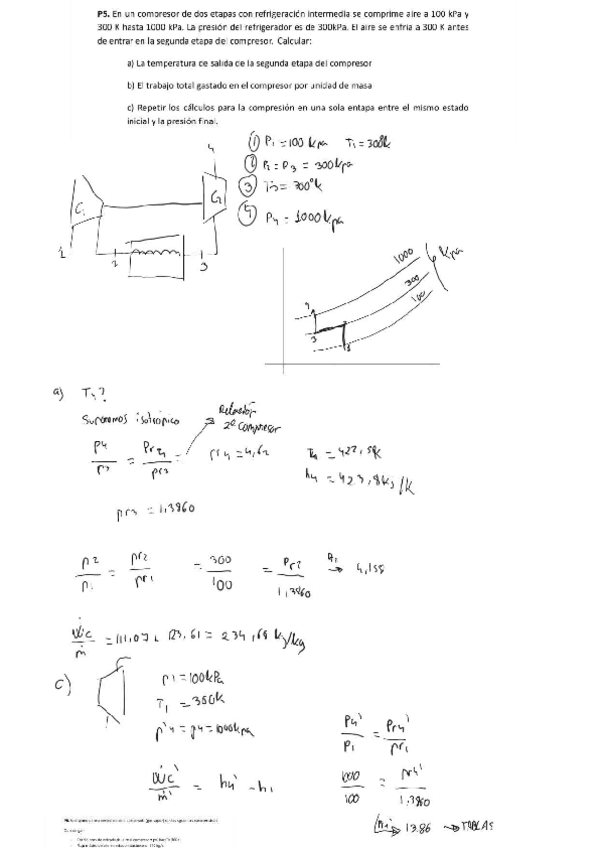 P5. En un compresor de dos etapas con refrigeración intermedia se comprime aire a 100 kPa y
300 K hasta 1000 kPa. La presión del refrigerador es de 300kPa. El aire se enfría a 300 K antes
de entrar en la segunda etapa del compresor. Calcular:
a) La temperatura de salida de la segunda etapa del compresor
b) El trabajo total gastado en el compresor por unidad de masa
c) Repetir los cálculos para la compresión en una sola entapa entre el mismo estado
inicial y la presión final.
① P1 = 100 kpa T1 = 300k
② P2 = P3 = 300kpa
③ T3 = 300°k
④ P4 = 1000kpa
4
C1
C2
1 2 3
1000 kpa
300
100
3
a) T4?
Suponemos isotrópico
2º compresor
p4/p3 = pr4/pr3 pr4 = 4,62 T4 = 422,5k
h4 = 423,8kJ/K
pr3 = 1,3860
p2/p1 = pr2/pr1 = 300/100 = pr2/1,3860 → 4,158
Ẇc/ṁ = 111,07 + 123,61 = 234,68 kJ/kg
c)
p1 = 100kPa
T1 = 350k
p'4 = p4 = 1000kpa
P4'/P1 = Pr4'/pr1
Ẇc'/ṁ' = h4' - h1
1000/100 = pr4'/1,3860
13.86 → TABLAS